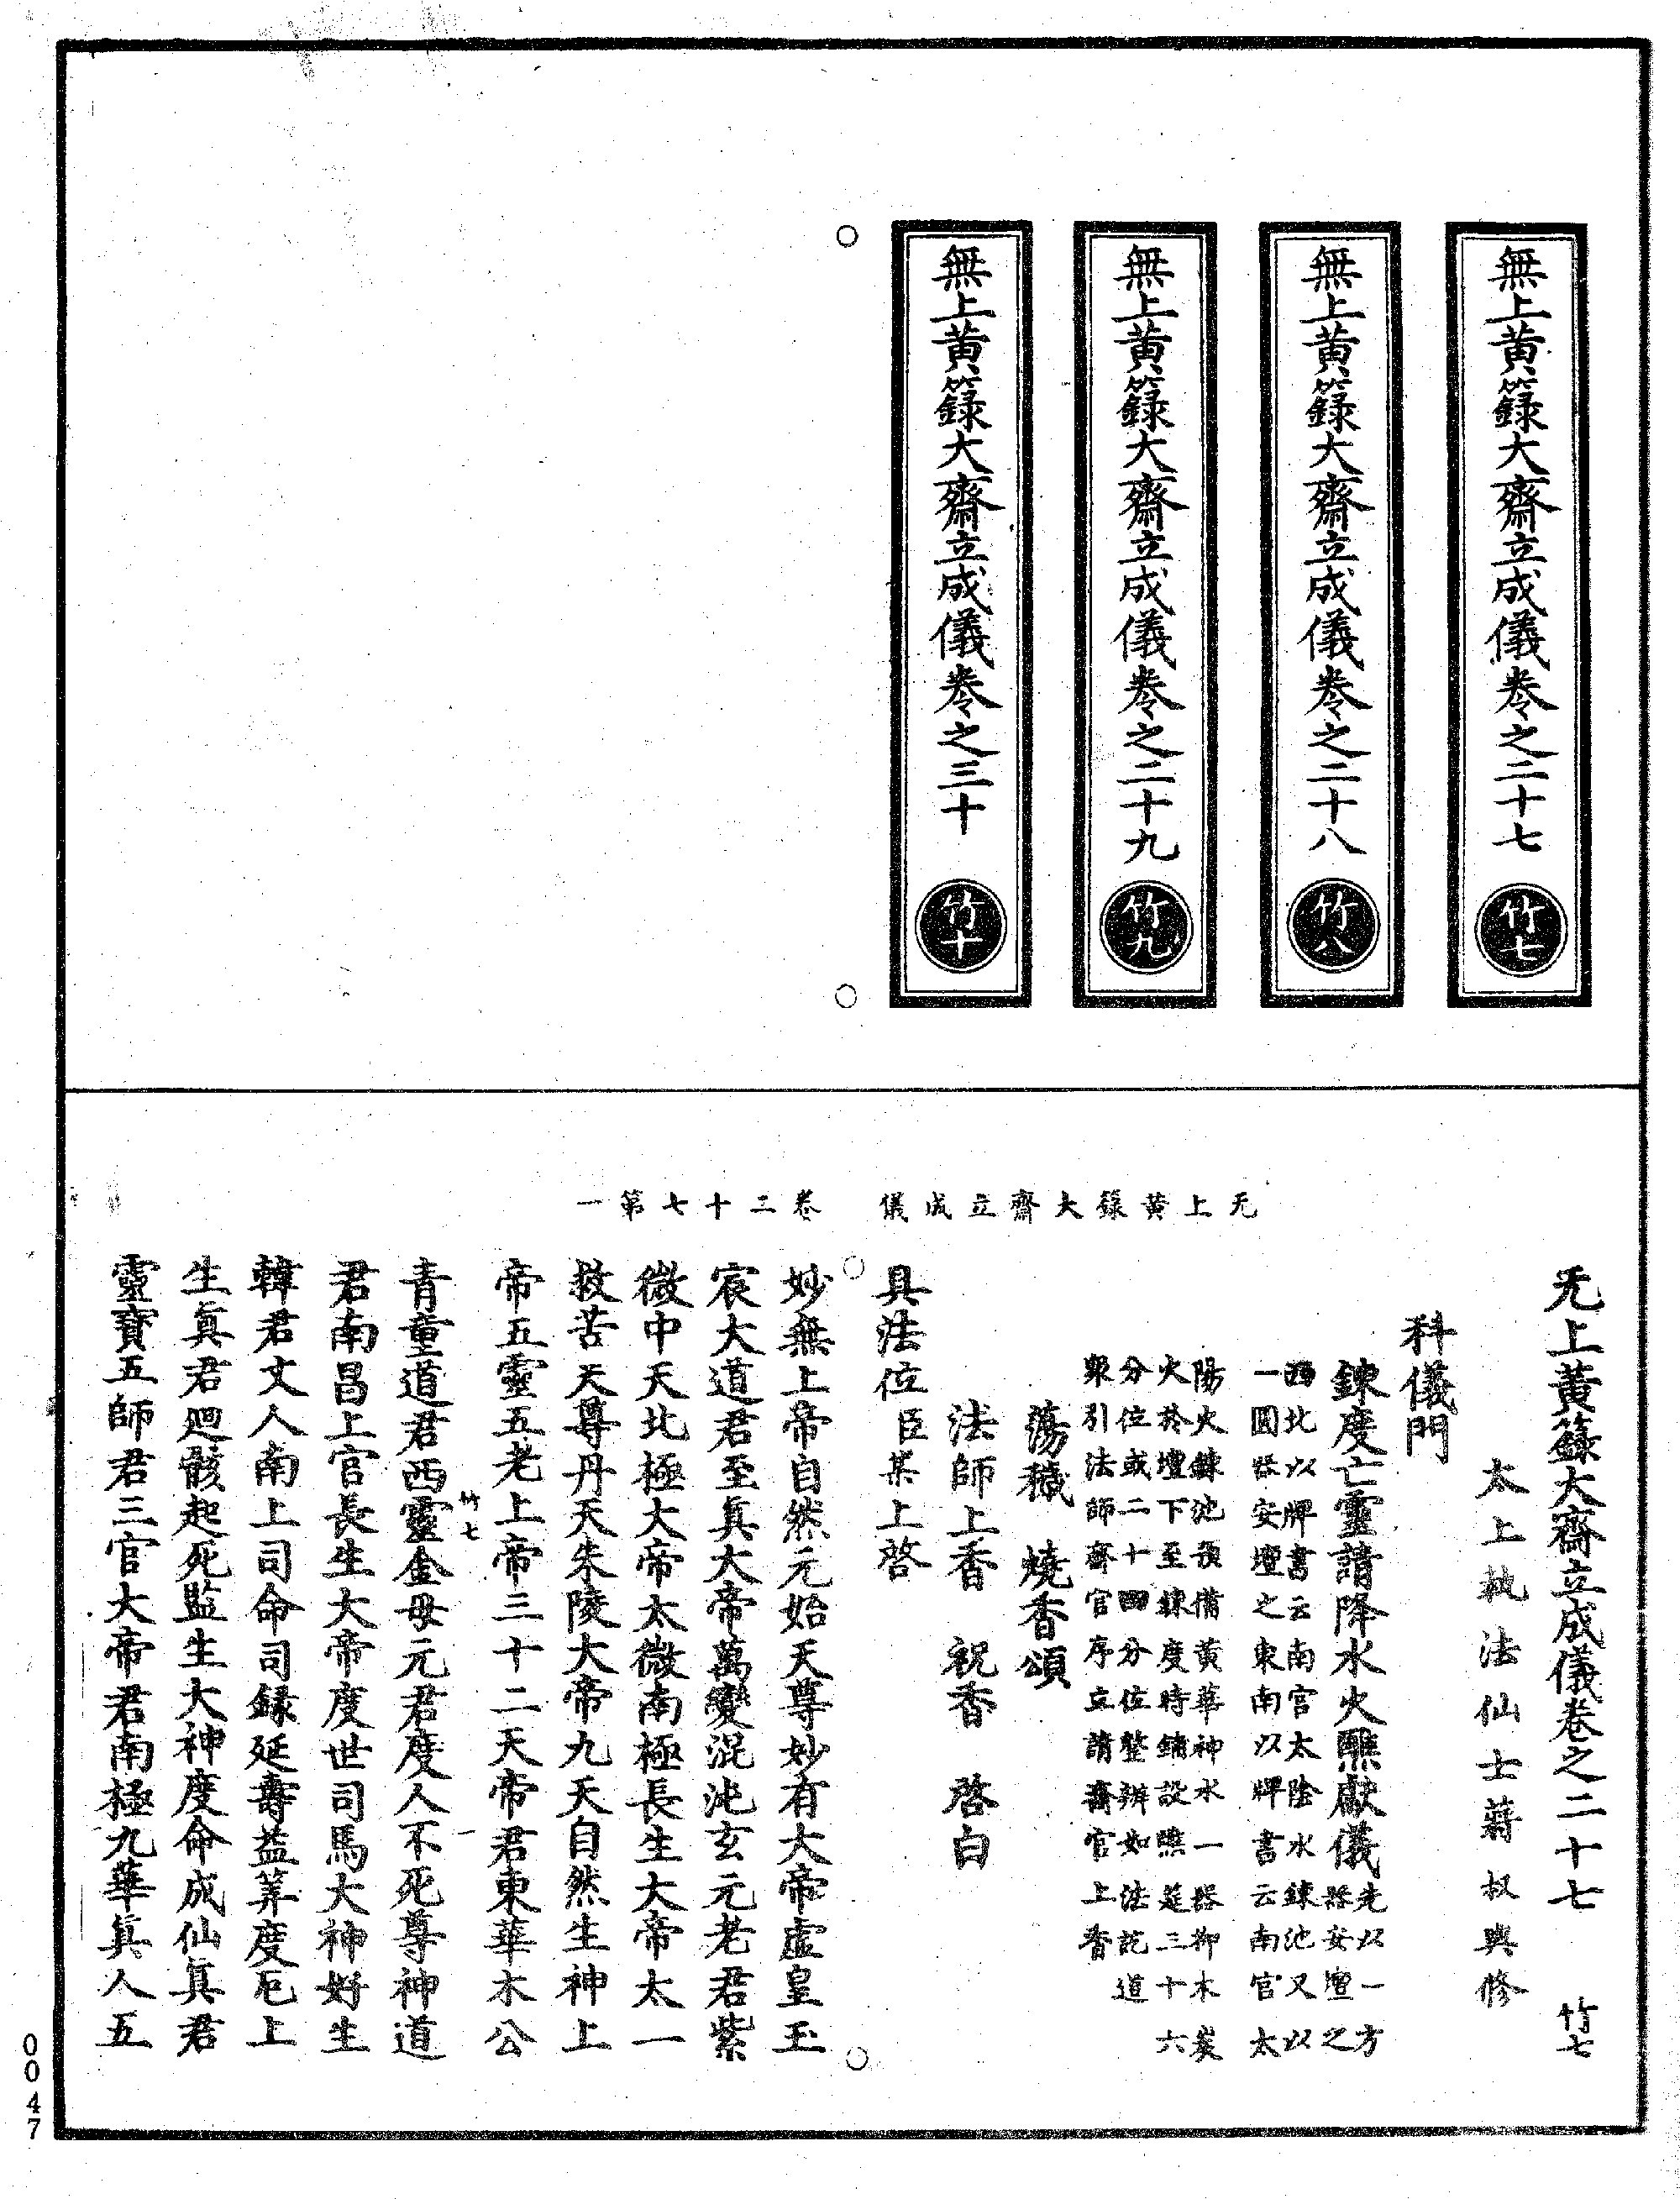 無上黃籙大齋立成儀卷之二十七 竹七
無上黃籙大齋立成儀卷之二十八 竹八
無上黃籙大齋立成儀卷之二十九 竹九
無上黃籙大齋立成儀卷之三十 竹十
无上黃籙大齋立成儀 卷二十七第一
无上黃籙大齋立成儀卷之二十七 竹七
太上執法仙士蔣叔輿修
科儀門
鍊度亡靈請降水火醮獻儀先以一方
器安壇之
西北以牌書云南宮太陰水鍊池又以
一圓器安壇之東南以牌書云南宮太
陽火鍊池預備黃華神水一器柳木炭
火於壇下至鍊度時鋪設醮筵三十六
分位或二十四分位整辦如法訖道
衆引法師齋官序立請齋官上香
蕩穢 燒香頌
法師上香 祝香 啓白
具法位臣某上啓
妙無上帝自然元始天尊妙有大帝虛皇玉
宸大道君至眞大帝萬變混沌玄元老君紫
微中天北極大帝太微南極長生大帝太一
救苦天尊丹天朱陵大帝九天自然生神上
帝五靈五老上帝三十二天帝君東華木公
竹七 一
青童道君西靈金母元君度人不死尊神道
君南昌上官長生大帝度世司馬大神好生
韓君丈人南上司命司録延壽益筭度厄上
生眞君廻骸起死監生大神度命成仙眞君
靈寶五師君三官大帝君南極九華眞人五
0047